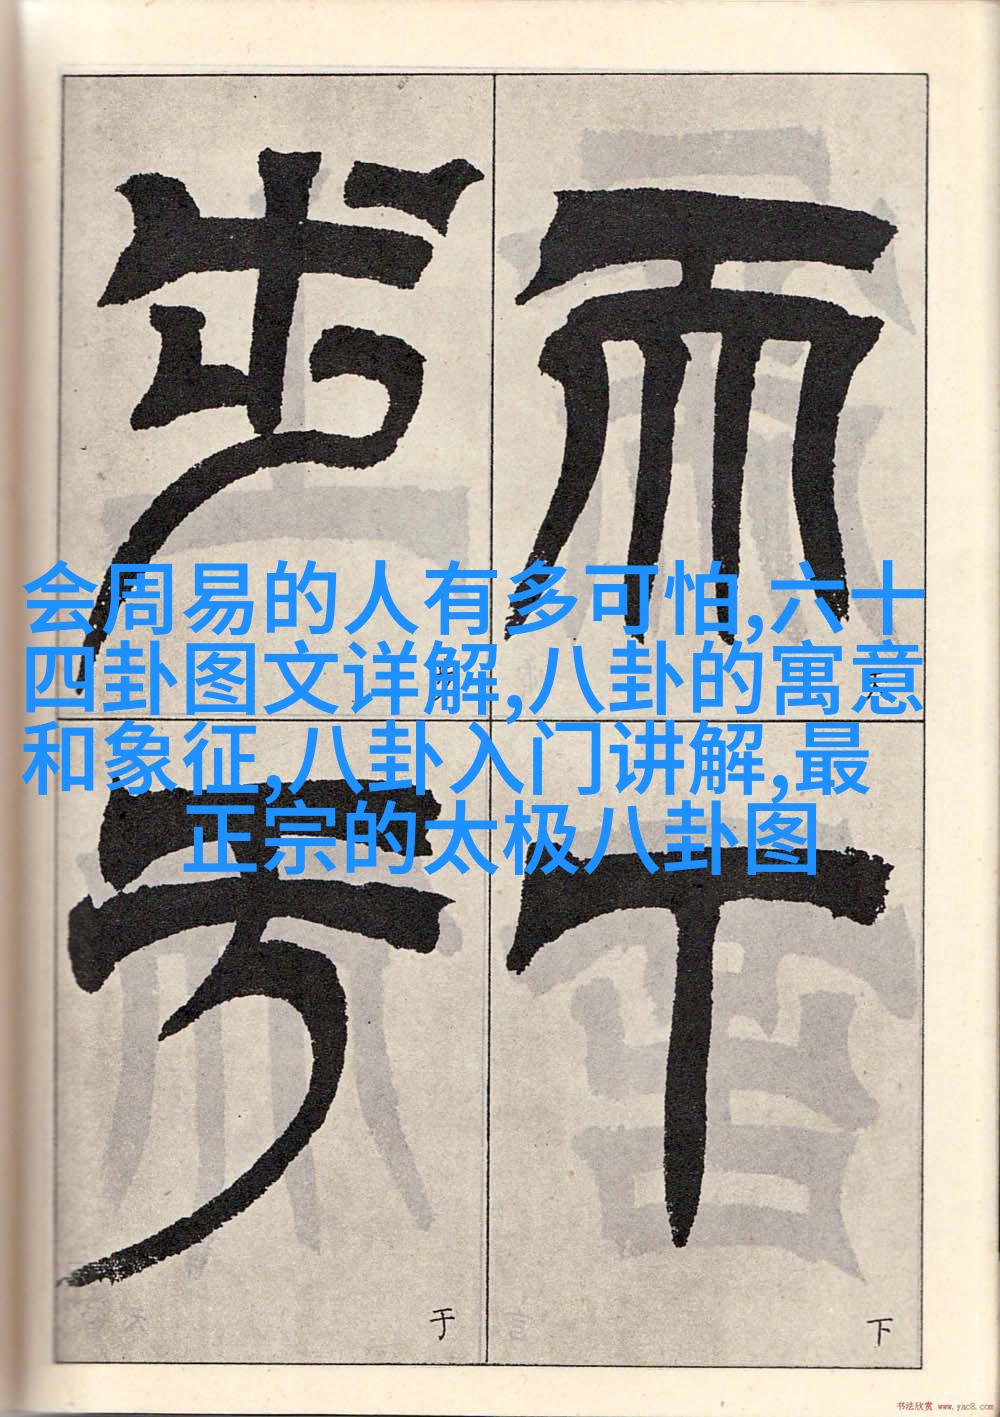 会周易的人有多可怕,六十
四卦图文详解,八卦的寓意
和象征,八卦入门讲解,最
正宗的太极八卦图
而
下
步
于
下
于
书法欣赏 www.yac8.com